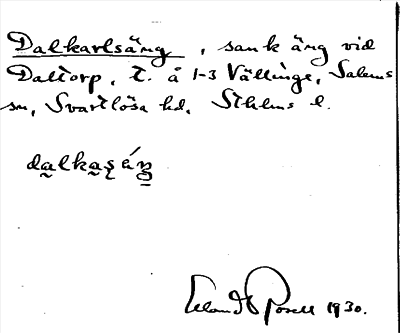 Dalkarlsäng, sank äng vid
Daltorp, t. å 1-3 Vällinge, Salems
sn, Svartlösa hd, Sthlms l.
dalkaşáŋ
Erland Rosell 1930.